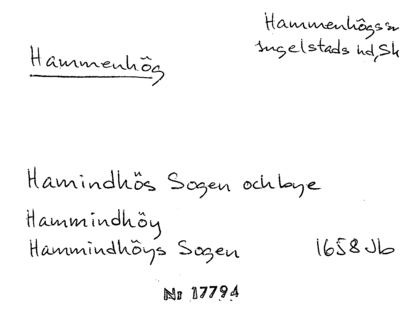 Hammenhögs
Ingelstads hd, Sk
Hammenhög
Hamindhös Sogen och bye
Hammindhöy
Hammindhöys Sogen 1658 Jb
Nr 17794